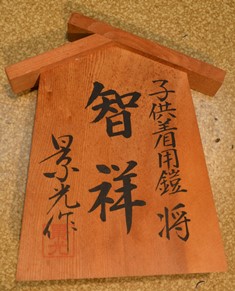 子供着用鎧 将
智祥
景光作